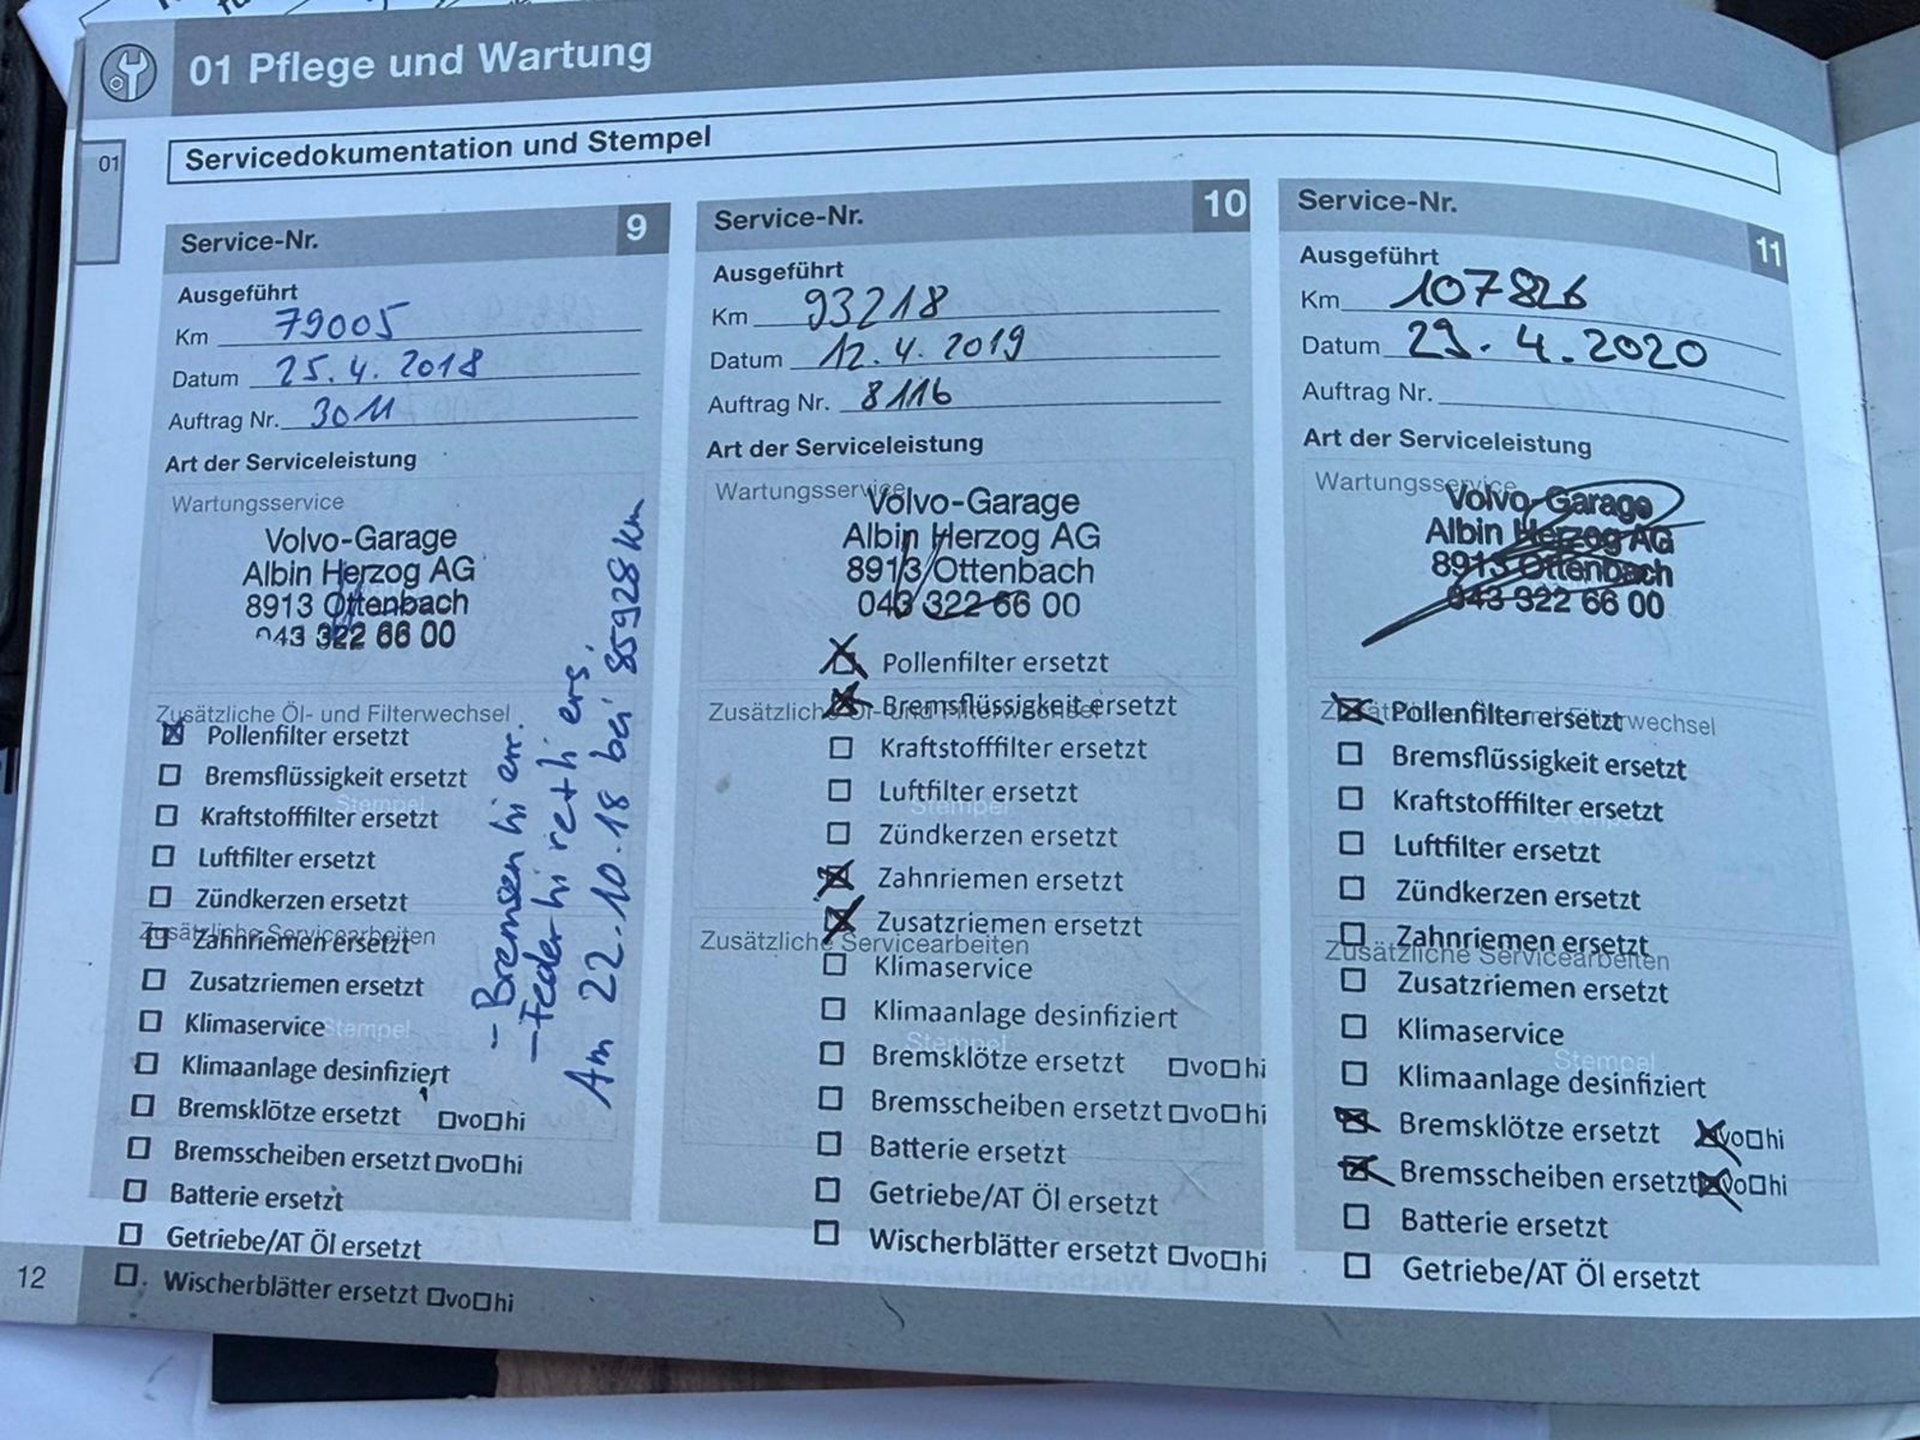 01 Pflege und Wartung
01
Servicedokumentation und Stempel
Service-Nr. 9
Ausgeführt
Km 79005
Datum 25.4.2018
Auftrag Nr. 3011
Art der Serviceleistung
Wartungsservice
Volvo-Garage
Albin Herzog AG
8913 Ottenbach
043 322 66 00
Zusätzliche Öl- und Filterwechsel
Pollenfilter ersetzt
Bremsflüssigkeit ersetzt
Stempel
Kraftstofffilter ersetzt
Luftfilter ersetzt
Zündkerzen ersetzt
Zusätzliche Servicearbeiten
Zahnriemen ersetzt
Zusatzriemen ersetzt
Klimaservice
Stempel
Klimaanlage desinfiziert
Bremsklötze ersetzt □vo□hi
Bremsscheiben ersetzt □vo□hi
Batterie ersetzt
Getriebe/AT Öl ersetzt
Wischerblätter ersetzt □vo□hi
- Bremsen hi err.
- Feder hi re+li ers.
Am 22.10.18 bei 85928 km
Service-Nr. 10
Ausgeführt
Km 93218
Datum 12.4.2019
Auftrag Nr. 8116
Art der Serviceleistung
Wartungsservice
Volvo-Garage
Albin Herzog AG
8913 Ottenbach
043 322 66 00
Pollenfilter ersetzt
Zusätzliche Öl- und Filterwechsel
Bremsflüssigkeit ersetzt
Kraftstofffilter ersetzt
Luftfilter ersetzt
Stempel
Zündkerzen ersetzt
Zahnriemen ersetzt
Zusatzriemen ersetzt
Zusätzliche Servicearbeiten
Klimaservice
Klimaanlage desinfiziert
Stempel
Bremsklötze ersetzt □vo□hi
Bremsscheiben ersetzt □vo□hi
Batterie ersetzt
Getriebe/AT Öl ersetzt
Wischerblätter ersetzt □vo□hi
Service-Nr. 11
Ausgeführt
Km 107826
Datum 29.4.2020
Auftrag Nr.
Art der Serviceleistung
Wartungsservice
Volvo-Garage
Albin Herzog AG
8913 Ottenbach
043 322 66 00
Zusätzliche Öl- und Filterwechsel
Pollenfilter ersetzt
Bremsflüssigkeit ersetzt
Kraftstofffilter ersetzt
Stempel
Luftfilter ersetzt
Zündkerzen ersetzt
Zahnriemen ersetzt
Zusätzliche Servicearbeiten
Zusatzriemen ersetzt
Klimaservice
Stempel
Klimaanlage desinfiziert
Bremsklötze ersetzt vo□hi
Bremsscheiben ersetzt vo□hi
Batterie ersetzt
Getriebe/AT Öl ersetzt
12